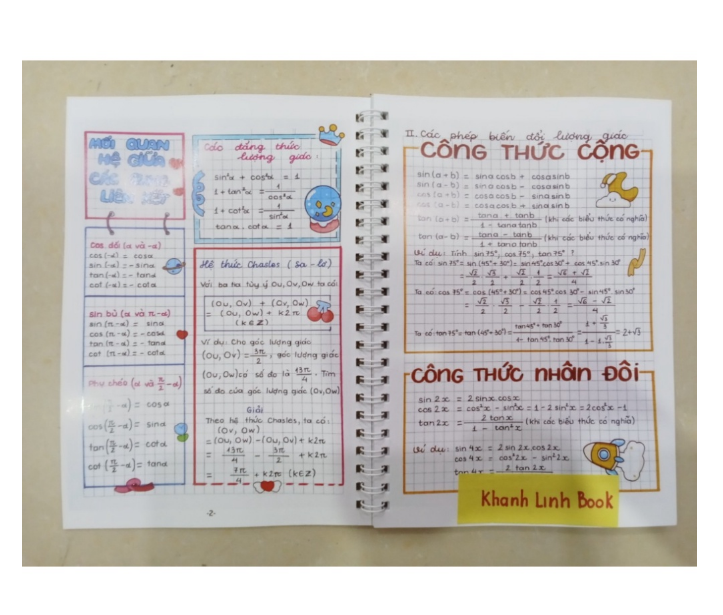 MỐI QUAN
HỆ GIỮA
CÁC
LIÊN KẾT
Cos đối (α và -α)
cos (-α) = cosα
sin (-α) = -sinα
tan (-α) = -tanα
cot (-α) = -cotα
Sin bù (α và π-α)
sin (π-α) = sinα
cos (π-α) = -cosα
tan (π-α) = -tanα
cot (π-α) = -cotα
Phụ chéo (α và π/2 -α)
-α) = cosα
cos(π/2 -α) = sinα
tan(π/2 -α) = cotα
cot(π/2 -α) = tanα
Các đẳng thức
lượng giác:
sin²α + cos²α = 1
1 + tan²α = 1/cos²α
1 + cot²α = 1/sin²α
tanα. cotα = 1
Hệ thức Chasles (Sa - lơ)
Với ba tia tùy ý Ou, Ov, Ow ta có:
(Ou, Ov) + (Ov, Ow)
= (Ou, Ow) + k2π
(k∈Z)
Ví dụ: Cho góc lượng giác
(Ou, Ov) = 3π/2, góc lượng giác
(Ou, Ow) có số đo là 13π/4. Tìm
số đo của góc lượng giác (Ov, Ow)
Giải
Theo hệ thức Chasles, ta có:
(Ov, Ow)
= (Ou, Ow) - (Ou, Ov) + k2π
= 13π/4 - 3π/2 + k2π
= 7π/4 + k2π (k∈Z)
-2-
II. Các phép biến đổi lượng giác
CÔNG THỨC CỘNG
sin(a+b) = sina cosb + cosa sinb
sin(a-b) = sina cosb - cosa sinb
= cosa cosb - sina sinb
= cosa cosb + sina sinb
tan(a+b) = tana + tanb / 1 - tana tanb (khi các biểu thức có nghĩa)
tan(a-b) = tana - tanb / 1 + tana tanb (khi các biểu thức có nghĩa)
Ví dụ: Tính sin 75°, cos 75°, tan 75°!
Ta có: sin 75° = sin(45°+30°) = sin45° cos30° + cos45° sin30°
= √2/2 . √3/2 + √2/2 . 1/2 = √6 + √2 / 4
Ta có: cos 75° = cos(45°+30°) = cos45° cos30° - sin45° sin30°
= √2/2 . √3/2 - √2/2 . 1/2 = √6 - √2 / 4
Ta có: tan 75° = tan(45°+30°) = tan45° + tan30° / 1 - tan45° tan30° = 1 + √3/3 / 1 - 1 √3/3 = 2+√3
CÔNG THỨC NHÂN ĐÔI
sin 2x = 2 sinx cosx
cos 2x = cos²x - sin²x = 1 - 2sin²x = 2cos²x - 1
tan 2x = 2 tanx / 1 - tan²x (khi các biểu thức có nghĩa)
Ví dụ: sin 4x = 2 sin 2x cos 2x
cos 4x = cos²2x - sin²2x
tan 4x = 2 tan 2x
Khanh Linh Book